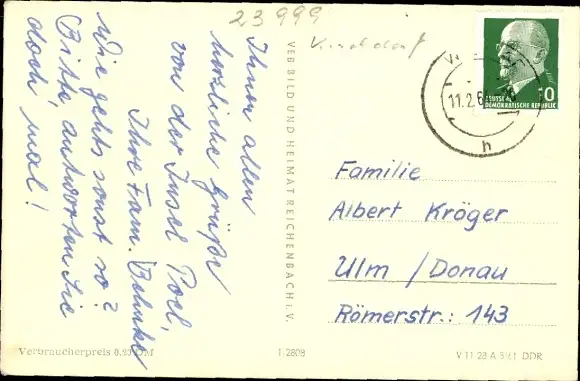 23999
Ihnen allen
herzliche Grüße
von der Insel Poel,
Ihre Fam. Behnke
Wie gehts sonst so?
Bitte, antworten Sie
doch mal!
VEB BILD UND HEIMAT REICHENBACH i. V.
DEUTSCHE
DEMOKRATISCHE REPUBLIK
10
11.2.6
h
Familie
Albert Kröger
Ulm / Donau
Römerstr.: 143
Verbraucherpreis 0,20 DM
1-2808
V 11 28 A 3/61 DDR